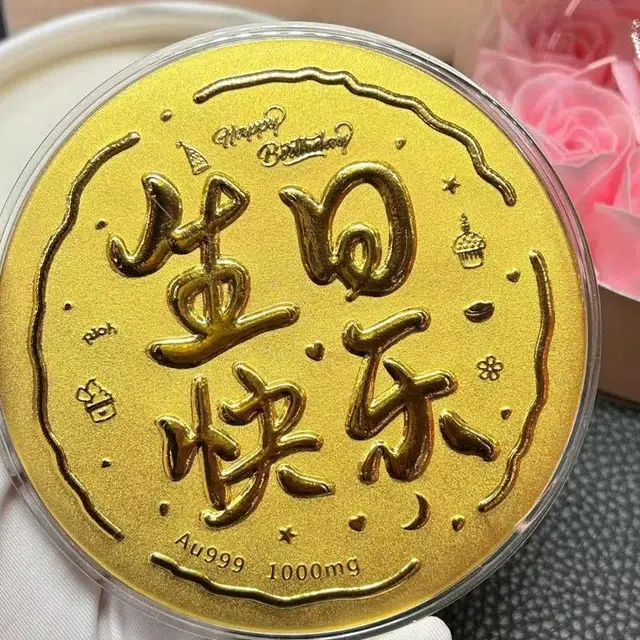 Happy
Birthday
生日
快乐
Au999 1000mg